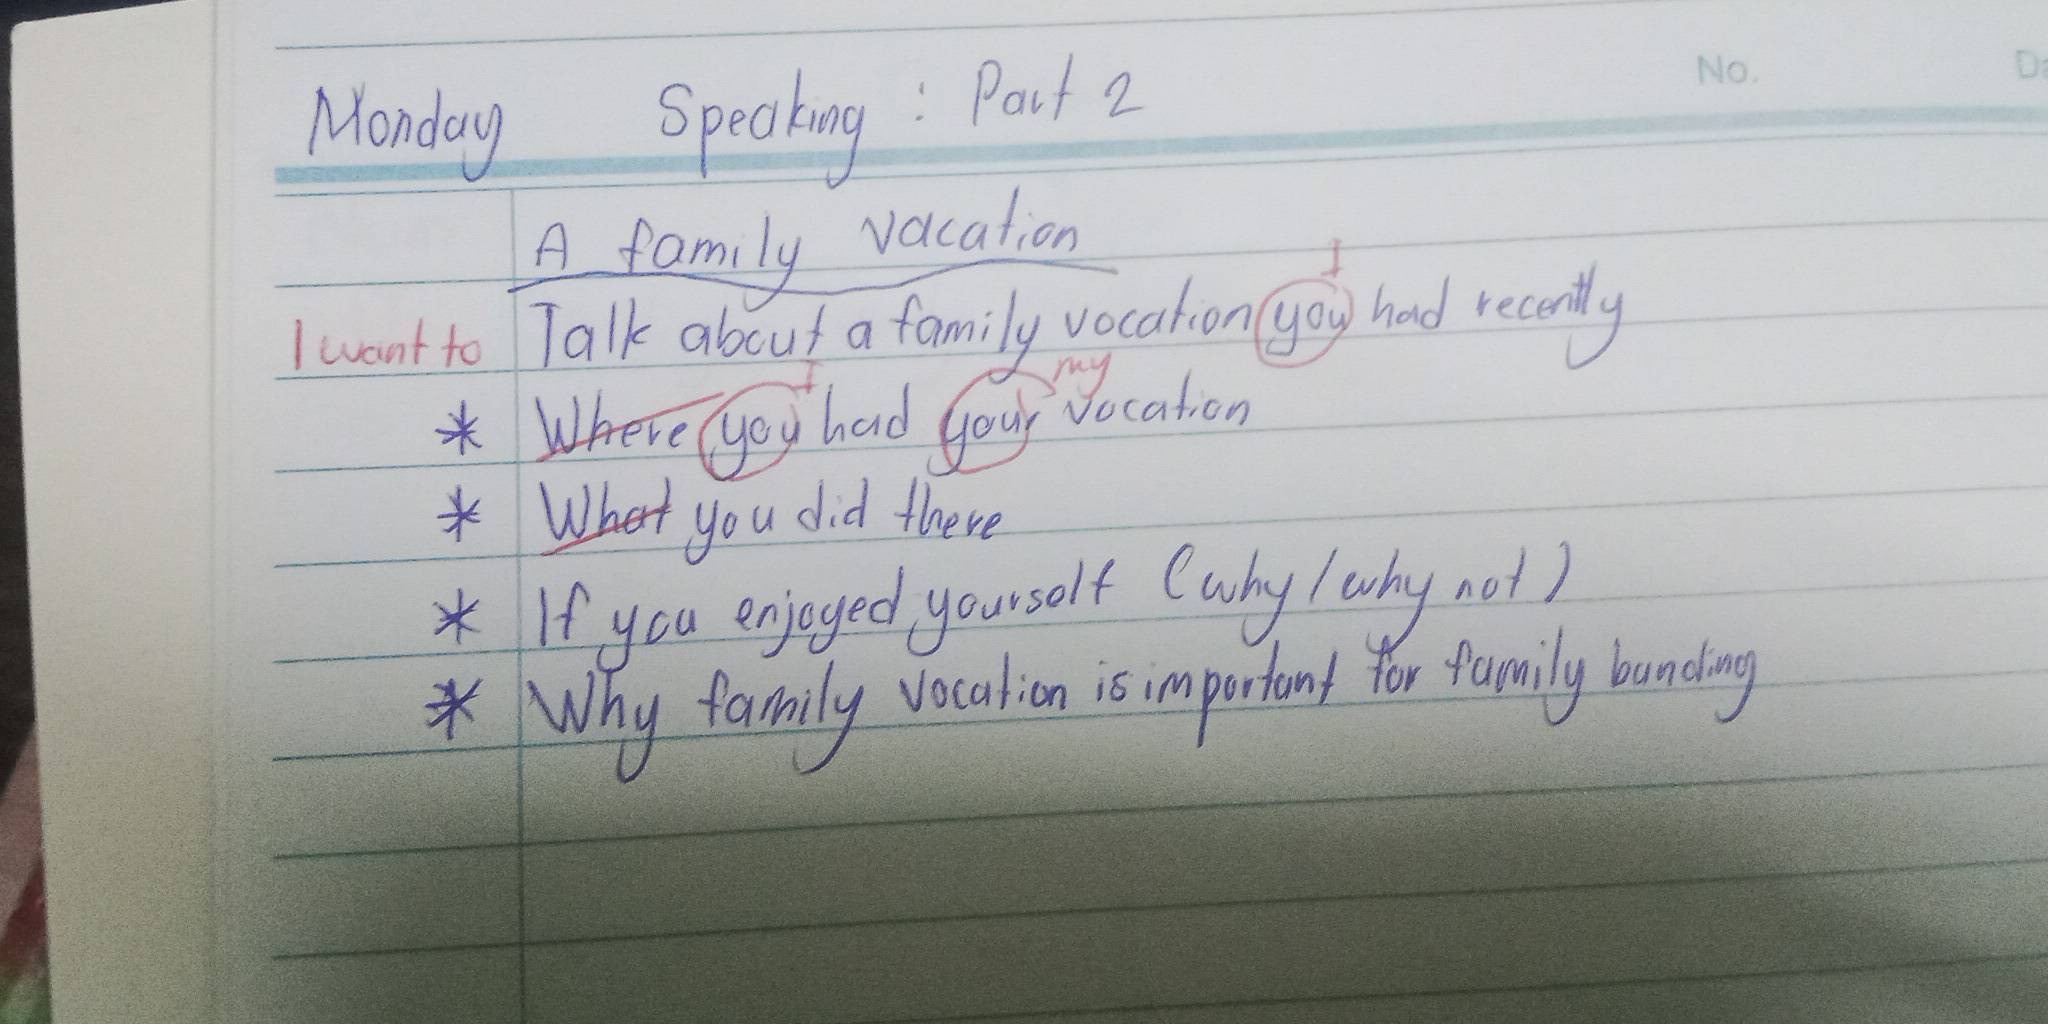 No. Da
Monday Speaking : Part 2
A family vacation
I
I want to Talk about a family vocation you had recently
I my
* Where you had your vocation
* What you did there
* If you enjoyed yourself (why / why not)
* Why family vocation is important for family bunding